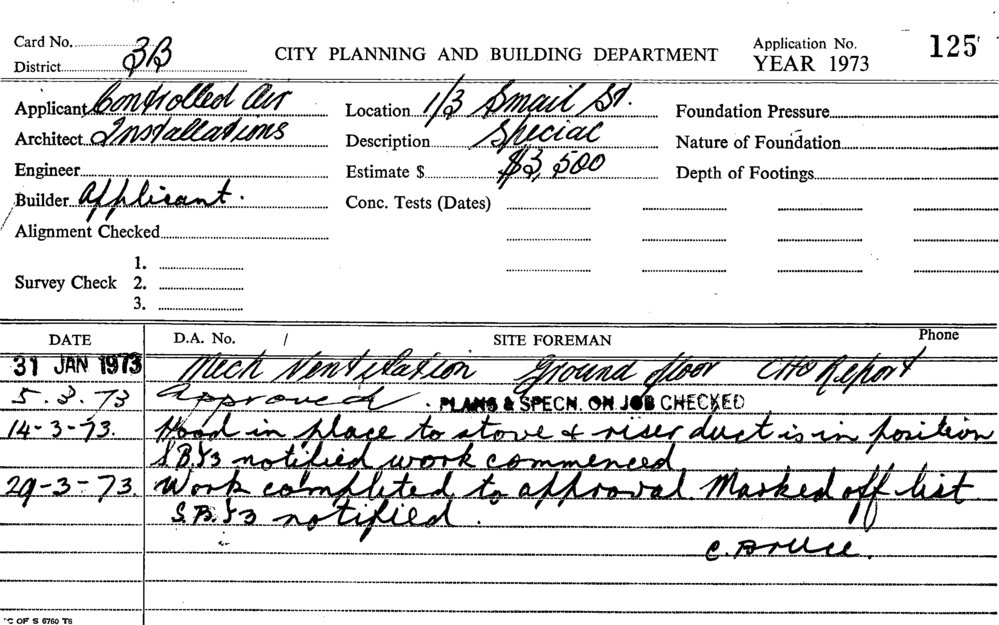 Card No.
District 3B
CITY PLANNING AND BUILDING DEPARTMENT
Application No. 125
YEAR 1973
Applicant Controlled Air
Architect Installations
Engineer
Builder Applicant.
Alignment Checked
Survey Check 1.
2.
3.
Location 1/3 Smail St.
Description Special
Estimate $ $3,500
Conc. Tests (Dates)
Foundation Pressure
Nature of Foundation
Depth of Footings
DATE D.A. No. / SITE FOREMAN Phone
31 JAN 1973 Mech Ventilation Ground floor CHO Report
5.3.73 Approved. PLANS & SPECN. ON JOB CHECKED
14-3-73. Hood in place to stove & riser duct is in position
notified work commenced
29-3-73. Work completed to approval. Marked off list
notified.
C. Bruce.
C OF S 6760 TS